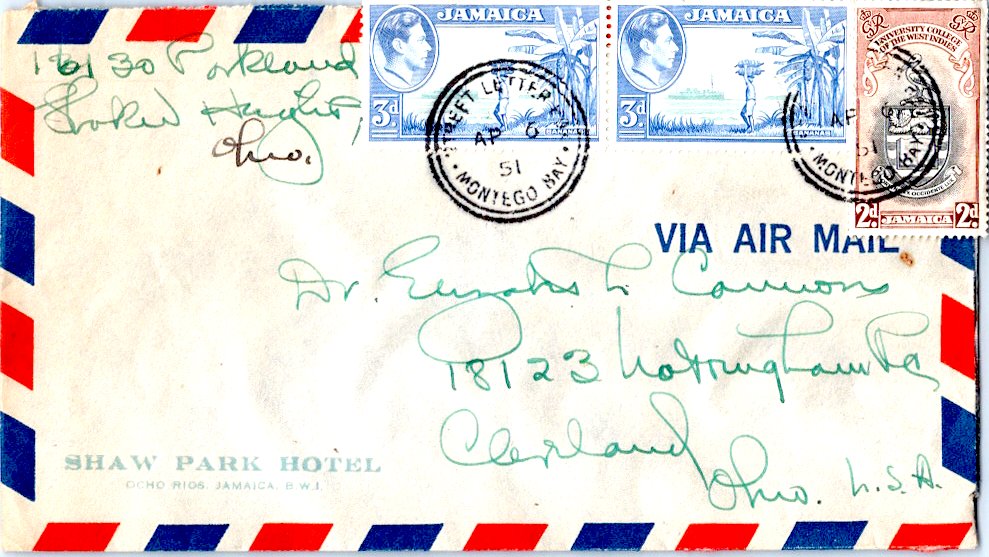 16130 Parkland
Shaker Heights,
Ohio.
JAMAICA
3d
BANANAS
JAMAICA
3d
BANANAS
UNIVERSITY COLLEGE
OF THE WEST INDIES
2d. JAMAICA 2d.
STREET LETTER
AP 6
51
MONTEGO BAY
AP
51
MONTEGO BAY
VIA AIR MAIL
Dr. Elizabeth L. Cannons
18123 Nottingham Rd
Cleveland
Ohio. U.S.A.
SHAW PARK HOTEL
OCHO RIOS, JAMAICA. B.W.I.